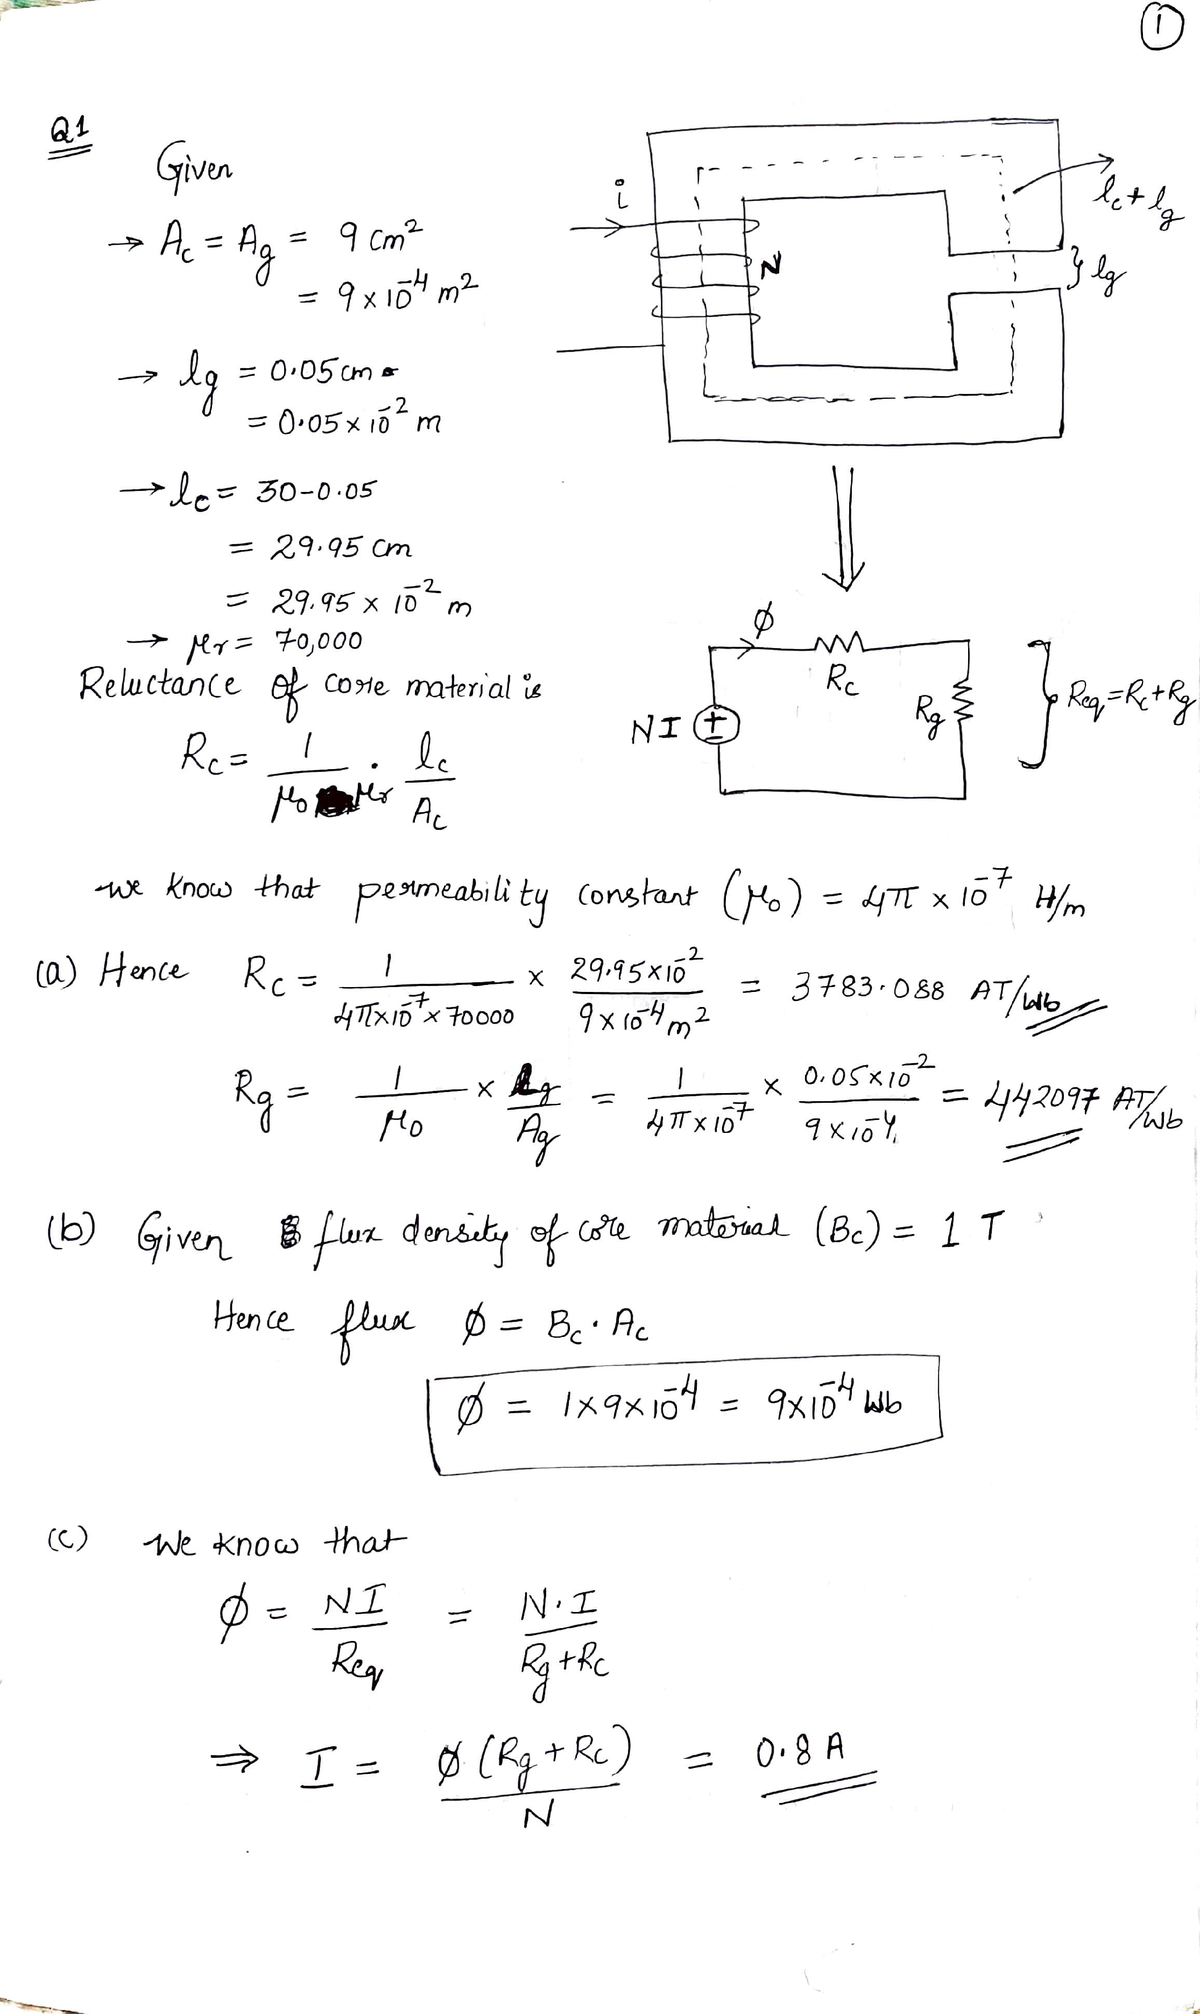 1
Q1
Given
→ Ac = Ag = 9 cm²
= 9 × 10⁻⁴ m²
→ lg = 0.05 cm
= 0.05 × 10⁻² m
→ lc = 30-0.05
= 29.95 cm
= 29.95 × 10⁻² m
→ μr = 70,000
i
N
lc + lg
} lg
Reluctance of core material is
Rc = 1/(μ0 μr) · lc/Ac
ϕ
Rc
Rg
NI
Req = Rc + Rg
we know that permeability constant (μ0) = 4π × 10⁻⁷ H/m
(a) Hence Rc = 1/(4π×10⁻⁷×70000) × (29.95×10⁻²)/(9×10⁻⁴ m²) = 3783.088 AT/Wb
Rg = 1/μ0 × lg/Ag = 1/(4π×10⁻⁷) × (0.05×10⁻²)/(9×10⁻⁴) = 442097 AT/Wb
(b) Given flux density of core material (Bc) = 1 T
Hence flux ϕ = Bc · Ac
ϕ = 1×9×10⁻⁴ = 9×10⁻⁴ Wb
(c) We know that
ϕ = NI/Req = N·I/(Rg + Rc)
⇒ I = ϕ (Rg + Rc)/N = 0.8 A